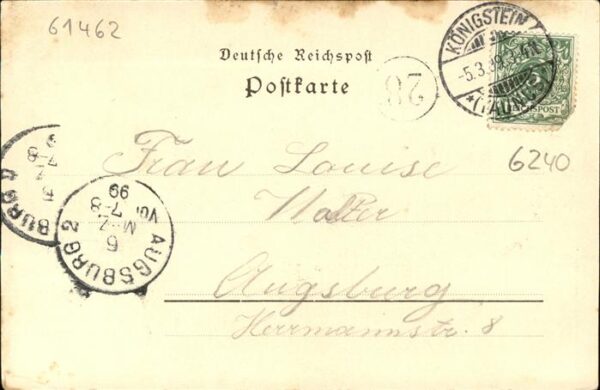 61462
Deutsche Reichspost
Postkarte
28
KÖNIGSTEIN
5.3.99
(TAUNUS)
REICHSPOST
6240
Frau Louise
Walter
Augsburg
Herrmannstr. 8
AUGSBURG 2
6
MRZ
VOR 7-8
99
BURG
7-8